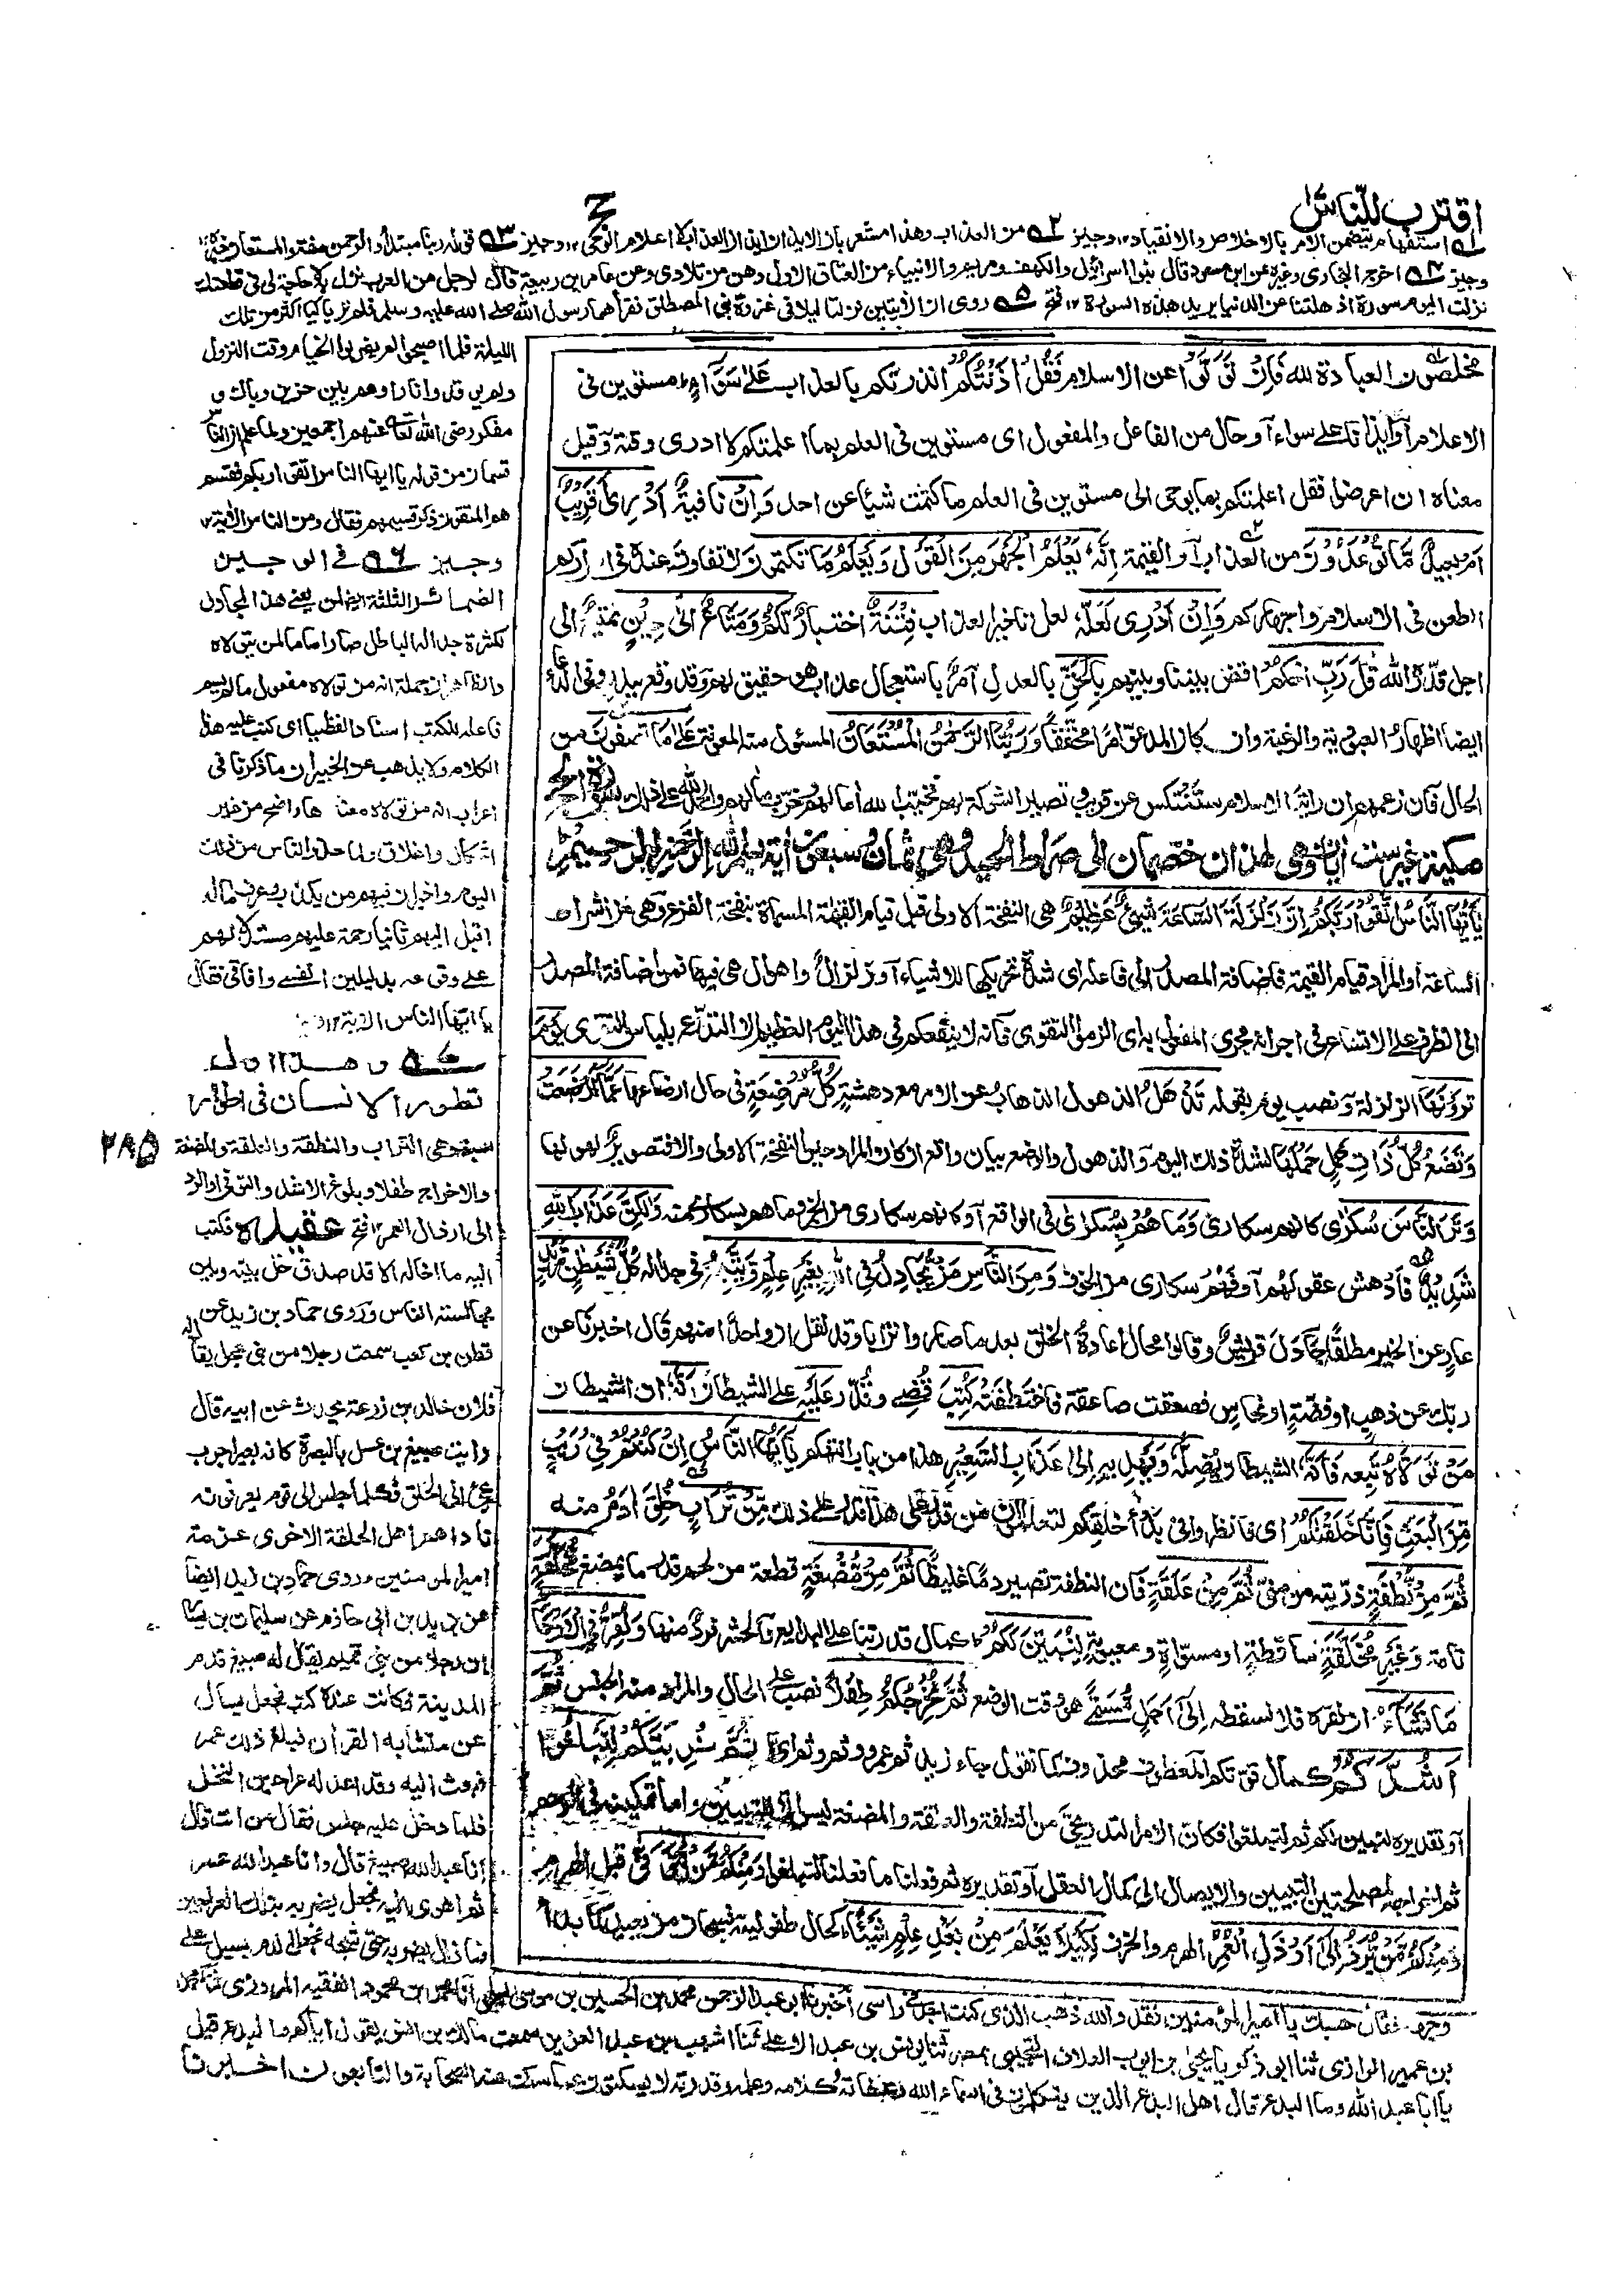 اقترب للناس
حج
استفهام يتضمن الامر بالاخلاص والانقياد ۱۲ وجيز من العذاب وهذا مستعر بان الايذان ايذان العذاب لا اعلام الوحي ۱۲ وجيز قوله ربنا مبتدأ والرحمن صفته والمستعان خبره
وجيز اخرج البخاري وغيره عن ابن مسعود قال بنو اسرائيل والكهف ومريم والانبياء من العتاق الاول وهن من تلادي وعن عامر بن ربيعة قال لرجل من العرب نزل به لا حاجة لي في قطعتك
نزلت اليوم سورة اذهلتنا عن الدنيا يريد هذه السورة ۱۲ فتح روى ان الايتين نزلتا ليلا في غزوة بني المصطلق فقرأهما رسول الله صلى الله عليه وسلم فلم نر باكيا اكثر من تلك
مخلصون العبادة لله فَاِنْ تَوَلَّوْا عن الاسلام فَقُلْ اٰذَنْتُكُمْ انذرتكم بالعذاب عَلٰى سَوَآءٍ مستوين في
الاعلام او ايذانا على سواء او حال من الفاعل والمفعول اى مستوين في العلم بما اعلمتكم لا ادرى وقته وقيل
معناه ان اعرضوا فقل اعلمتكم بما يوحى الى مستوين في العلم ما كتمت شيئا عن احد وَاِنْ نافية اَدْرِىْ اَقَرِيْبٌ
اَمْ بَعِيْدٌ مَّا تُوْعَدُوْنَ من العذاب او القيمة اِنَّهٗ يَعْلَمُ الْجَهْرَ مِنَ الْقَوْلِ وَيَعْلَمُ مَا تَكْتُمُوْنَ لا تفاوت عنده في
الطعن في الاسلام واجهاركم وَاِنْ اَدْرِىْ لَعَلَّهٗ لعل تاخير العذاب فِتْنَةٌ اختبار لَّكُمْ وَمَتَاعٌ اِلٰى حِيْنٍ تمتيع الى
اجل قدره الله قٰلَ رَبِّ احْكُمْ اقض بيننا وبينهم بِالْحَقِّ بالعدل امر باستعجال عذاب هو حقيق لهم وقد وقع ببدر وفي الدعاء
ايضا اظهار العبودية والرغبة وان كان المدعو امرا محققا وَرَبُّنَا الرَّحْمٰنُ الْمُسْتَعَانُ المسئول منه المعونة عَلٰى مَا تَصِفُوْنَ من
الحال فان زعمهم ان راية الاسلام ستنتكس عن قريب وتصير الشوكة لهم فخيب الله آمالهم وخرب مآلهم والحمد لله على ذلك سورة الحج
مكية غير ست ايات وهي هذان خصمان الى صراط الحميد وهي ثمان وسبعون آية بسم الله الرحمن الرحيم
يٰٓاَيُّهَا النَّاسُ اتَّقُوْا رَبَّكُمْ اِنَّ زَلْزَلَةَ السَّاعَةِ شَيْءٌ عَظِيْمٌ هى النفخة الاولى قبل قيام القيمة المسماة بنفخة الفزع وهي من اشراط
الساعة او المراد قيام القيمة فاضافة المصدر الى فاعله اى شدة تحريكها للاشياء او زلزال واهوال هي فيها فمن اضافة المصدر
الى الظرف على الاتساع في اجرائه مجرى المفعول به اى الزموا التقوى فانه لا ينفعكم في هذا اليوم العظيم الا التدرع بلباس التقوى يَوْمَ
تَرَوْنَهَا الزلزلة ونصب يوم بقوله تَذْهَلُ الذهول الذهاب عن الامر مع دهشة كُلُّ مُرْضِعَةٍ في حال ارضاعها عَمَّا اَرْضَعَتْ
وَتَضَعُ كُلُّ ذَاتِ حَمْلٍ حَمْلَهَا لشدة ذلك اليوم والذهول والوضع بيان واقع ان كان المراد حين النفخة الاولى والا فتصوير لهولها
وَتَرَى النَّاسَ سُكٰرٰى كانهم سكارى وَمَا هُمْ بِسُكٰرٰى في الواقع او كانهم سكارى من الخمر وما هم بسكارى منه وَلٰكِنَّ عَذَابَ اللّٰهِ
شَدِيْدٌ فادهش عقولهم او فهم سكارى من الخوف وَمِنَ النَّاسِ مَنْ يُّجَادِلُ فِى اللّٰهِ بِغَيْرِ عِلْمٍ وَّيَتَّبِعُ في جداله كُلَّ شَيْطٰنٍ مَّرِيْدٍ
عار عن الخير مطلقا جادل قريش وقالوا محال اعادة الخلق بعد ما صاروا ترابا وقد نقل ان واحدا منهم قال اخبرنا عن
ربك عن ذهب او فضة او نحاس فصعقت صاعقة فاختطفته كُتِبَ قضى وقدر عَلَيْهِ على الشيطان اَنَّهٗ ان الشيطان
مَنْ تَوَلَّاهُ تبعه فَاَنَّهٗ الشيطان يُضِلُّهٗ وَيَهْدِيْهِ اِلٰى عَذَابِ السَّعِيْرِ هذا من باب التهكم يٰٓاَيُّهَا النَّاسُ اِنْ كُنْتُمْ فِىْ رَيْبٍ
مِّنَ الْبَعْثِ فَاِنَّا خَلَقْنٰكُمْ اى فانظروا في بدأ خلقكم لتعلموا ان من قدر على هذا قدر على ذلك مِّنْ تُرَابٍ خلق ادم منه
ثُمَّ مِنْ نُّطْفَةٍ ذريته من مني ثُمَّ مِنْ عَلَقَةٍ فان النطفة تصير دما غليظا ثُمَّ مِنْ مُّضْغَةٍ قطعة من لحم قدر ما يمضغ مُّخَلَّقَةٍ
تامة وَغَيْرِ مُخَلَّقَةٍ ساقطة او مسواة ومعيوبة لِّنُبَيِّنَ لَكُمْ كمال قدرتنا على البدايع والحشر فرد منها وَنُقِرُّ فِى الْاَرْحَامِ
مَا نَشَآءُ ان نقره فلا نسقطه اِلٰٓى اَجَلٍ مُّسَمًّى هو وقت الوضع ثُمَّ نُخْرِجُكُمْ طِفْلًا نصب على الحال والمراد منه الجنس ثُمَّ
اَشُدَّكُمْ كمال قوتكم المعطوف محذوف كما تقول جاء زيد ثم عمرو ثم وثم اى ثم نربيكم لِتَبْلُغُوْا
او تقديره لنبين لكم ثم لتبلغوا فكان الامر التدريجي من النطفة والعلقة والمضغة ليس الا للتبيين واما تمكينه في الرحم
ثم اخراجه لمصلحتين التبيين والايصال الى كمال العقل او تقديره ثم فعلنا ما فعلنا لتبلغوا وَمِنْكُمْ مَّنْ يُّتَوَفّٰى قبل الهرم
وَمِنْكُمْ مَّنْ يُّرَدُّ اِلٰٓى اَرْذَلِ الْعُمُرِ الهرم والخرف لِكَيْلَا يَعْلَمَ مِنْ بَعْدِ عِلْمٍ شَيْئًا كحال طفوليته فسبحان من يعيد كما بدأ
الليلة فلما اصبحوا لم يضربوا الخيام وقت النزول
ولم يطبخوا قدرا وكانوا بين حزين وباك و
مفكر رضي الله تعالى عنهم اجمعين ولما علم ان الناس
قسمان من قوله يا ايها الناس اتقوا ربكم فقسم
هو المتقون ذكر قسيمهم فقال ومن الناس الاية ۱۲
وجيز في الوجيز
الضمائر الثلثة لمن يعني هذا المجادل
لكثرة جداله الباطل صار اماما لمن يتولاه
فاعله للكتب اسنادا لفظيا اى كتب عليه هذا
الكلام ولا يذهب عن الخبير ان ما ذكرنا في
اعراب انه من تولاه معناها واضح من غير
على وقوعه بدليلين انفسي وآفاقي فقال
يا ايها الناس الاية ۱۲ وجيز
وهذا اول
تطور الانسان في اطوار
سبعة وهي التراب والنطفة والعلقة والمضغة
۲۸۵
والاخراج طفلا وبلوغ الاشد والتوفي او الرد
الى ارذل العمر ۱۲ فتح عقيدة فكتب
اليه ما اخاله الا قد صدق خل بينه وبين
مجالسته الناس وروى حماد بن زيد عن
قطن بن كعب سمعت رجلا من بني عجل يقال له
فلان خالد بن زرعة يحدث عن ابيه قال
رايت صبيغ بن عسل بالبصرة كانه بعير اجرب
يجئ الى الحلق فكلما جلس الى قوم لا يعرفونه
ناداهم اهل الحلقة الاخرى عزمة
امير المؤمنين وروى حماد بن زيد ايضا
عن يزيد بن ابي حازم عن سليمان بن يسار
ان رجلا من بني تميم يقال له صبيغ قدم
المدينة فكانت عنده كتب فجعل يسأل
عن متشابه القرآن فبلغ ذلك عمر
فبعث اليه وقد اعد له عراجين النخل
فلما دخل عليه جلس فقال من انت قال
انا عبد الله صبيغ قال وانا عبد الله عمر
ثم اهوى اليه فجعل يضربه بتلك العراجين
فما زال يضربه حتى شجه فجعل الدم يسيل على
وجهه فقال حسبك يا امير المؤمنين فقد والله ذهب الذي كنت اجد في راسي اخبرنا ابو عبد الرحمن محمد بن الحسين بن موسى السلمي انا محمد بن محمود الفقيه المروزي ثنا محمد
بن عمير الرازي ثنا ابو زكريا يحيى بن ايوب العلاف التجيبي بمصر ثنا يونس بن عبد الاعلى ثنا اشهب بن عبد العزيز سمعت مالك بن انس يقول اياكم والبدع قيل
يا ابا عبد الله وما البدع قال اهل البدع الذين يتكلمون في اسماء الله وصفاته وكلامه وعلمه وقدرته لا يسكتون عما سكت عنه الصحابة والتابعون اخبرنا